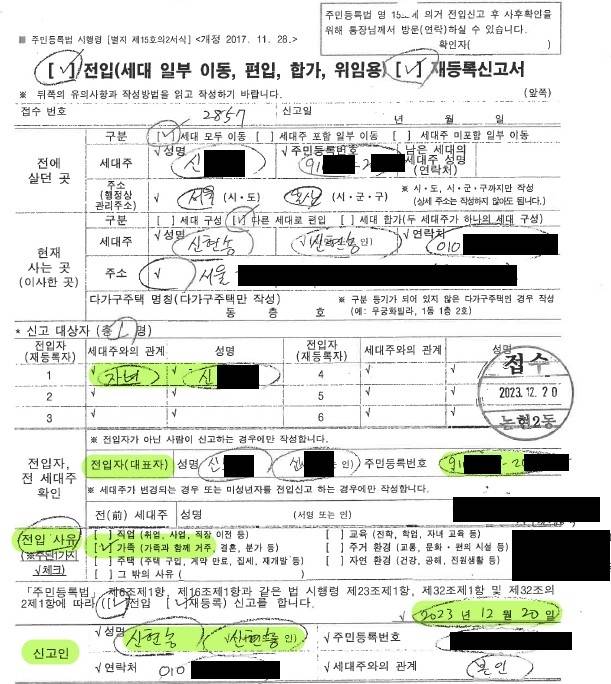 주민등록법 령 15조에 의거 전입신고 후 사후확인을
위해 통장님께서 방문(연락)하실 수 있습니다.
확인자( )
■ 주민등록법 시행령 [별지 제15호의2서식] <개정 2017. 11. 28.>
[√]전입(세대 일부 이동, 편입, 합가, 위임용) [√]재등록신고서
※ 뒤쪽의 유의사항과 작성방법을 읽고 작성하기 바랍니다. (앞쪽)
접수 번호 2857 신고일 년 월 일
전에 살던 곳
구분 [√]세대 모두 이동 [ ]세대주 포함 일부 이동 [ ] 세대주 미포함 일부 이동
세대주 √성명 신 √주민등록번호 91 -2 남은 세대의 세대주 성명 (연락처)
주소 (행정상 관리주소) √ 서울 (시·도) (시·군·구) ※ 시·도, 시·군·구까지만 작성 (상세 주소는 작성하지 않아도 됩니다.)
현재 사는 곳 (이사한 곳)
구분 [ ]세대 구성 [√]다른 세대로 편입 [ ]세대 합가(두 세대주가 하나의 세대 구성)
세대주 √성명 신현농 √신현농 인) √연락처 010
주소 √ 서울
다가구주택 명칭(다가구주택만 작성) 동 층 호 ※ 구분 등기가 되어 있지 않은 다가구주택인 경우 작성 (예: 무궁화빌라, 1동 1층 2호)
* 신고 대상자 (총 1 명)
전입자 (재등록자) 세대주와의 관계 성명 전입자 (재등록자) 세대주와의 관계 성명
1 √ 자녀 √ 신 4 √ √
2 √ √ 5 √ √
3 √ √ 6 √ √
접수
2023. 12. 20
논현2동
전입자, 전 세대주 확인
※ 전입자가 아닌 사람이 신고하는 경우에만 작성합니다.
전입자(대표자) 성명 신 신 인) 주민등록번호 91 -20
※ 세대주가 변경되는 경우 또는 미성년자를 전입신고 하는 경우에만 작성합니다.
전(前) 세대주 성명 (서명 또는 인)
전입 사유 (※주된1가지 √체크)
[ ]직업 (취업, 사업, 직장 이전 등) [ ]교육 (진학, 학업, 자녀 교육 등)
[√]가족 (가족과 함께 거주, 결혼, 분가 등) [ ]주거 환경 (교통, 문화·편의 시설 등)
[ ]주택 (주택 구입, 계약 만료, 집세, 재개발 등) [ ]자연 환경 (건강, 공해, 전원생활 등)
[ ]그 밖의 사유 (
「주민등록법」 제10조제1항, 제16조제1항과 같은 법 시행령 제23조제1항, 제32조제1항 및 제32조의
2제1항에 따라 ([√]전입 [√]재등록) 신고를 합니다.
√ 2023 년 12 월 20 일
신고인
√성명 신현농 √신현농 인) √주민등록번호
√연락처 010 √세대주와의 관계 본인